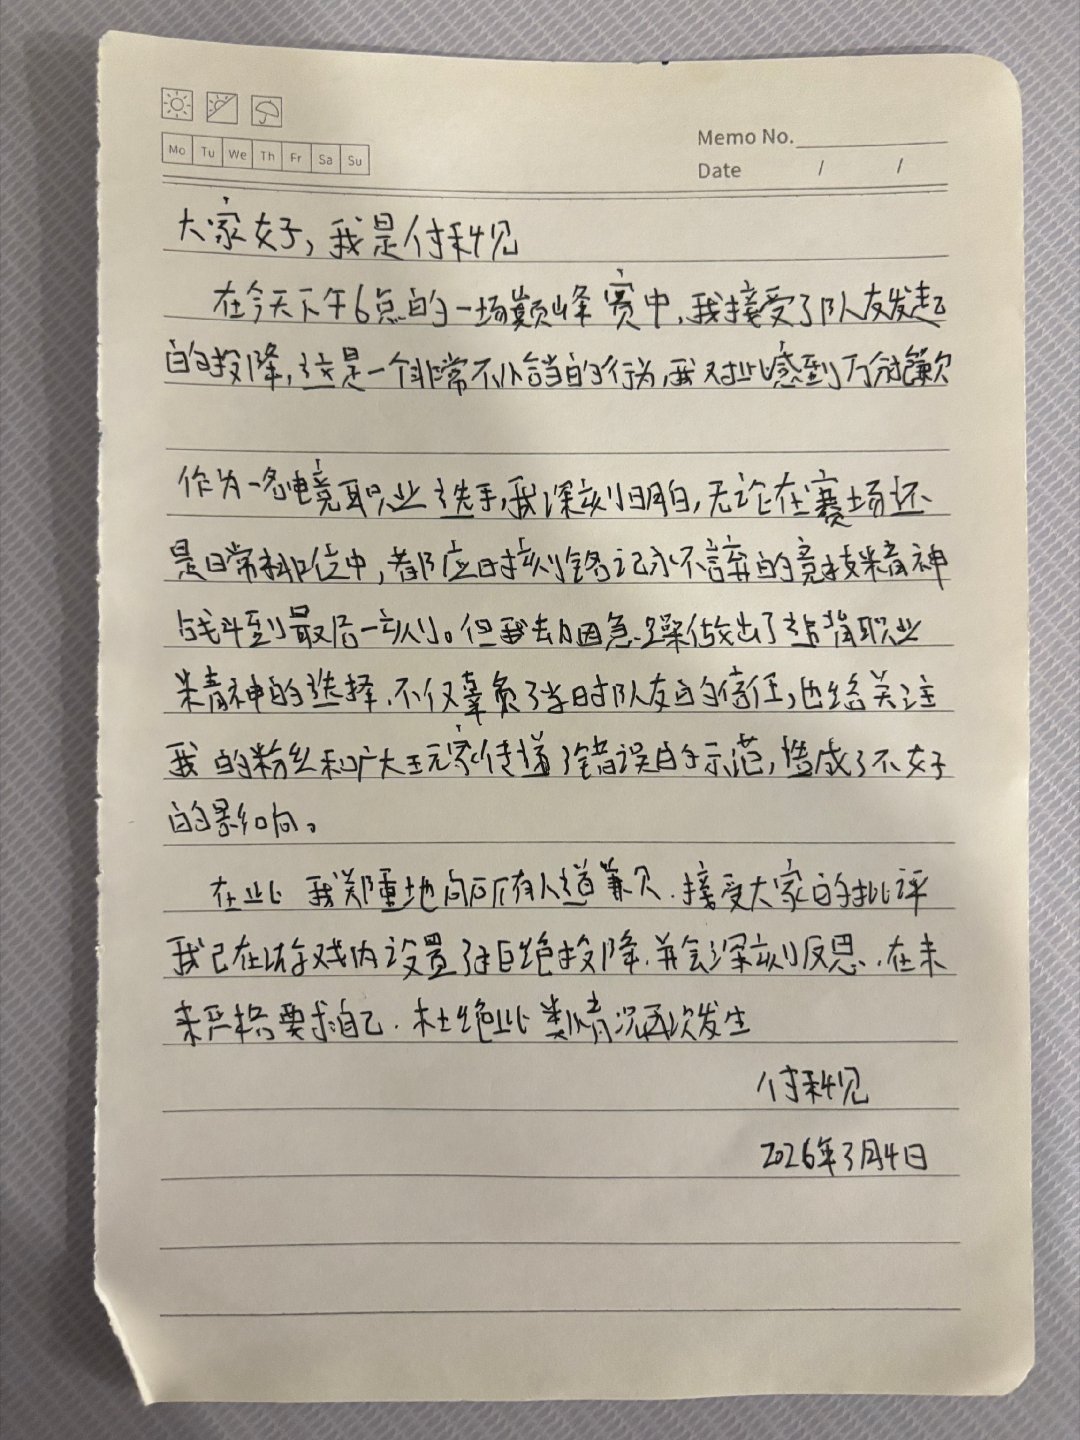 Mo Tu We Th Fr Sa Su
Memo No.
Date / /
大家好,我是付科见
在今天下午6点的一场巅峰赛中,我接受了队友发起
的投降,这是一个非常不恰当的行为,我对此感到万分抱歉
作为一名电竞职业选手,我深刻明白,无论在赛场还
是日常排位中,都应时刻铭记永不言弃的竞技精神
战斗到最后一刻。但我却因急躁做出了违背职业
精神的选择,不仅辜负了当时队友的信任,也给关注
我的粉丝和广大玩家传递了错误的示范,造成了不好
的影响。
在此 我郑重地向所有人道歉.接受大家的批评
我已在游戏内设置了拒绝投降.并会深刻反思.在未
来严格要求自己.杜绝此类情况再次发生
付科见
2026年3月4日